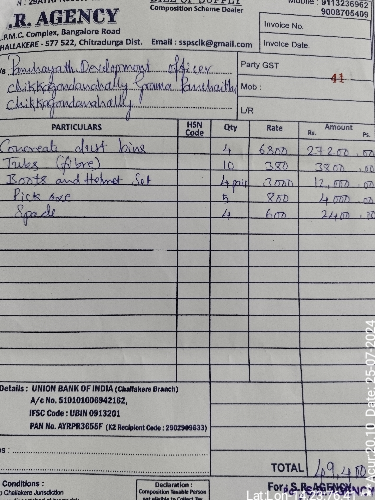 BILL OF SUPPLY
Composition Scheme Dealer
Mobile : 9113236962
9008705409
.R. AGENCY
P.M.C. Complex, Bangalore Road
HALLAKERE - 577 522, Chitradurga Dist. Email : sspsclk@gmail.com
Invoice No.
Invoice Date
Panchayath Development officer
chikkagondanahally Grama Panchaithi
chikkagondanahally
Party GST
Mob : 41
L/R
PARTICULARS HSN Code Qty Rate Amount
Rs. Ps.
Concreate dust bins 4 6800 27200 .00
Tubs (fibre) 10 380 3800 .00
Boots and Helmet Set 4 pair 3000 12,000 .00
Pick axe 5 800 4000 .00
Spade 4 600 2400 .00
Details : UNION BANK OF INDIA (Challakere Branch)
A/c No. 510101006942162,
IFSC Code : UBIN 0913201
PAN No. AYRPR3655F (K2 Recipient Code : 2902909633)
TOTAL 49,400
Conditions :
Challakere Jurisdiction
Declaration :
Composition Taxable Person
not eligible to Collect Tax
For : S.R. AGENCY
Date: 25-07-2024